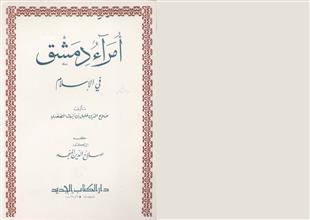 أمراء دمشق
في الإسلام
تأليف
صلاح الدين خليل بن أيبك الصفدي
صلاح الدين المنجد
دار الكتاب الجديد